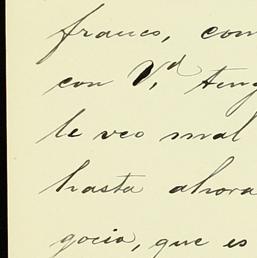 franco, com
con V,d teng
le veo mal
hasta ahora
gocio, que es